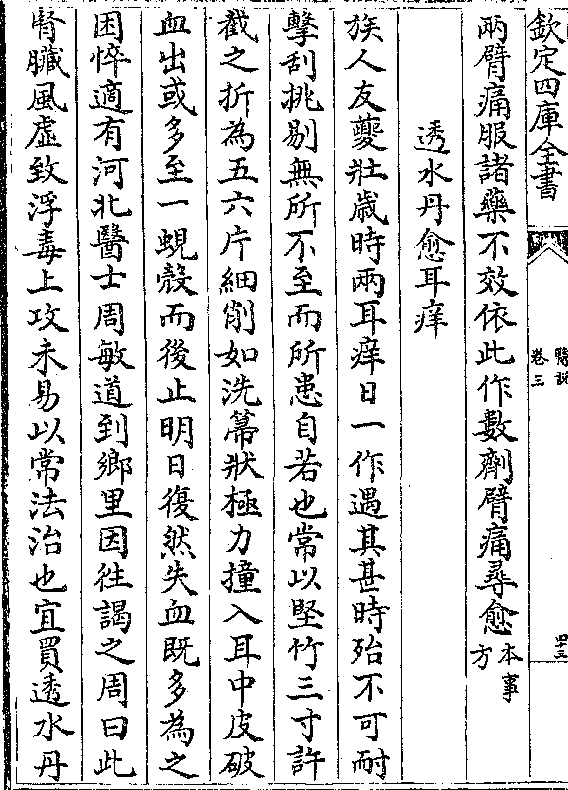 欽定四庫全書
醫說
卷三
四十三
兩臂痛服諸藥不效依此作數劑臂痛尋愈本事方
透水丹愈耳痒
族人友夔壯歲時兩耳痒日一作遇其甚時殆不可耐
擊刮挑剔無所不至而所患自若也常以堅竹三寸許
截之折為五六片細削如洗箒狀極力撞入耳中皮破
血出或多至一蜆殻而後止明日復然失血既多為之
困悴適有河北醫士周敏道到鄉里因徃謁之周曰此
腎臟風虛致浮毒上攻未易以常法治也宜買透水丹